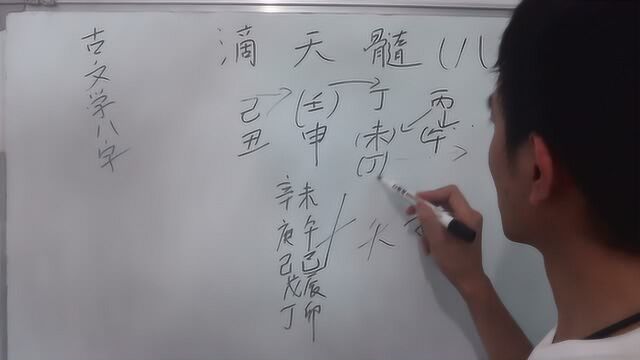 古文学八字
滴天髓(八
己 (壬) 丁 丙
丑 申 (未) (午)
(丁)
辛未
庚午
己巳
戊辰
丁卯
火